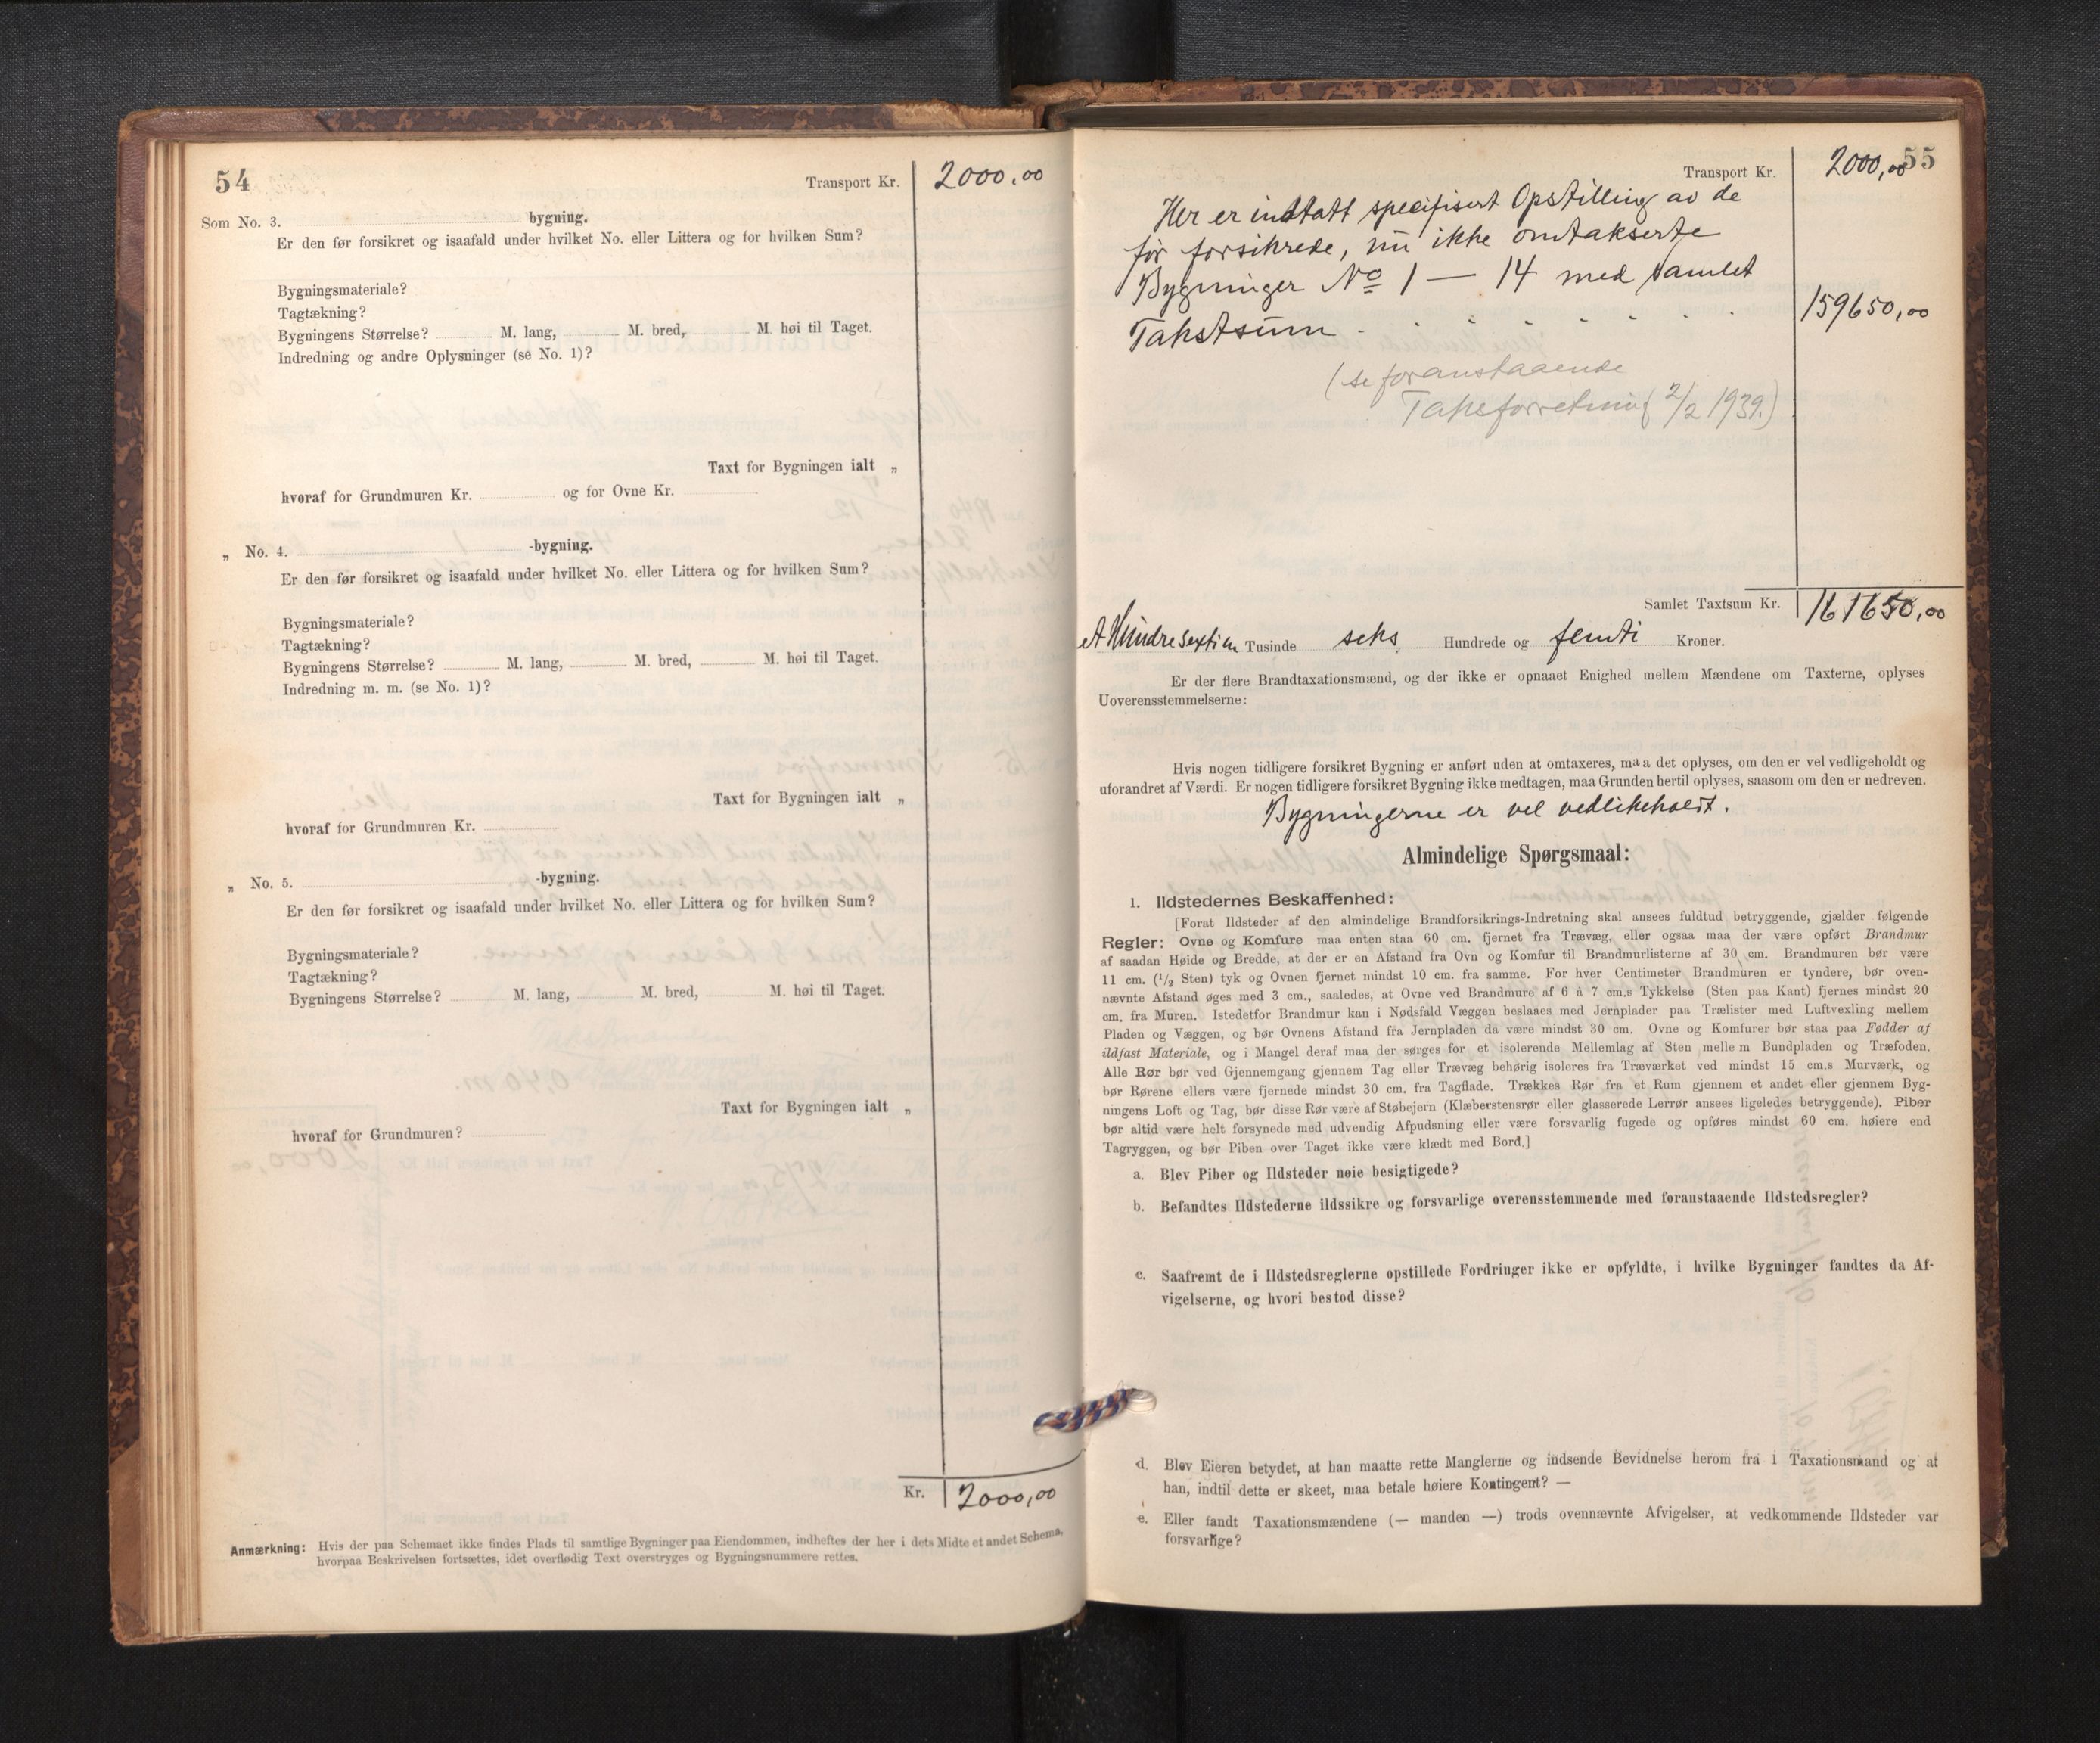 54
Transport Kr. 2000,00
Som No. 3. bygning.
Er den før forsikret og isaafald under hvilket No. eller Littera og for hvilken Sum?
Bygningsmateriale?
Tagtækning?
Bygningens Størrelse? M. lang, M. bred, M. høi til Taget.
Indredning og andre Oplysninger (se No. 1)?
Taxt for Bygningen ialt „
hvoraf for Grundmuren Kr. og for Ovne Kr.
„ No. 4. -bygning.
Er den før forsikret og isaafald under hvilket No. eller Littera og for hvilken Sum?
Bygningsmateriale?
Tagtækning?
Bygningens Størrelse? M. lang, M. bred, M. høi til Taget.
Indredning m. m. (se No. 1)?
Taxt for Bygningen ialt „
hvoraf for Grundmuren Kr.
„ No. 5. -bygning.
Er den før forsikret og isaafald under hvilket No. eller Littera og for hvilken Sum?
Bygningsmateriale?
Tagtækning?
Bygningens Størrelse? M. lang, M. bred, M. høi til Taget.
Taxt for Bygningen ialt „
hvoraf for Grundmuren?
Kr. 2000,00
Anmærkning: Hvis der paa Schemaet ikke findes Plads til samtlige Bygninger paa Eiendommen, indheftes der her i dets Midte et andet Schema,
hvorpaa Beskrivelsen fortsættes, idet overflødig Text overstryges og Bygningsnummere rettes.
55
Transport Kr. 2000,00
Her er indtatt specifisert Opstilling av de
før forsikrede, nu ikke omtakserte
Bygninger No 1 — 14 med samlet
Takstsum . . . . . . . 159650,00
(se foranstaaende
Takstforretning 2/2 1939.)
Samlet Taxtsum Kr. 161650,00
et Hundre sextien Tusinde seks Hundrede og femti Kroner.
Er der flere Brandtaxationsmænd, og der ikke er opnaaet Enighed mellem Mændene om Taxterne, oplyses
Uoverensstemmelserne:
Hvis nogen tidligere forsikret Bygning er anført uden at omtaxeres, maa det oplyses, om den er vel vedligeholdt og
uforandret af Værdi. Er nogen tidligere forsikret Bygning ikke medtagen, maa Grunden hertil oplyses, saasom om den er nedreven.
Bygningerne er vel vedlikeholdt.
Almindelige Spørgsmaal:
1. Ildstedernes Beskaffenhed:
[Forat Ildsteder af den almindelige Brandforsikrings-Indretning skal ansees fuldtud betryggende, gjælder følgende
Regler: Ovne og Komfure maa enten staa 60 cm. fjernet fra Trævæg, eller ogsaa maa der være opført Brandmur
af saadan Høide og Bredde, at der er en Afstand fra Ovn og Komfur til Brandmurlisterne af 30 cm. Brandmuren bør være
11 cm. (1/2 Sten) tyk og Ovnen fjernet mindst 10 cm. fra samme. For hver Centimeter Brandmuren er tyndere, bør oven-
nævnte Afstand øges med 3 cm., saaledes, at Ovne ved Brandmure af 6 à 7 cm.s Tykkelse (Sten paa Kant) fjernes mindst 20
cm. fra Muren. Istedetfor Brandmur kan i Nødsfald Væggen beslaaes med Jernplader paa Trælister med Luftvexling mellem
Pladen og Væggen, og bør Ovnens Afstand fra Jernpladen da være mindst 30 cm. Ovne og Komfurer bør staa paa Fødder af
ildfast Materiale, og i Mangel deraf maa der sørges for et isolerende Mellemlag af Sten, mellem Bundpladen og Træfoden.
Alle Rør bør ved Gjennemgang gjennem Tag eller Trævæg behørig isoleres fra Træværket ved mindst 15 cm.s Murværk, og
bør Rørene ellers være fjernede mindst 30 cm. fra Tagflade. Trækkes Rør fra et Rum gjennem et andet eller gjennem Byg-
ningens Loft og Tag, bør disse Rør være af Støbejern (Klæberstensrør eller glasserede Lerrør ansees ligeledes betryggende). Piber
bør altid være helt forsynede med udvendig Afpudsning eller være forsvarlig fugede og opføres mindst 60 cm. høiere end
Tagryggen, og bør Piben over Taget ikke være klædt med Bord.]
a. Blev Piber og Ildsteder nøie besigtigede?
b. Befandtes Ildstederne ildssikre og forsvarlige overensstemmende med foranstaaende Ildstedsregler?
c. Saafremt de i Ildstedsreglerne opstillede Fordringer ikke er opfyldte, i hvilke Bygninger fandtes da Af-
vigelserne, og hvori bestod disse?
d. Blev Eieren betydet, at han maatte rette Manglerne og indsende Bevidnelse herom fra 1 Taxationsmand og at
han, indtil dette er skeet, maa betale høiere Kontingent? —
e. Eller fandt Taxationsmændene (— manden —) trods ovennævnte Afvigelser, at vedkommende Ildsteder var
forsvarlige?